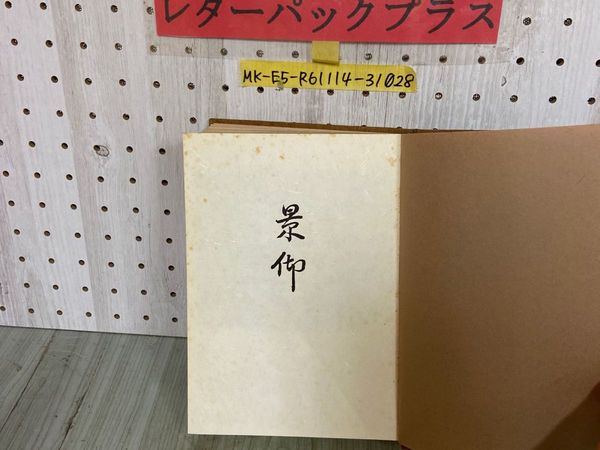 レターパックプラス
MK-E5-R61114-31028
景仰